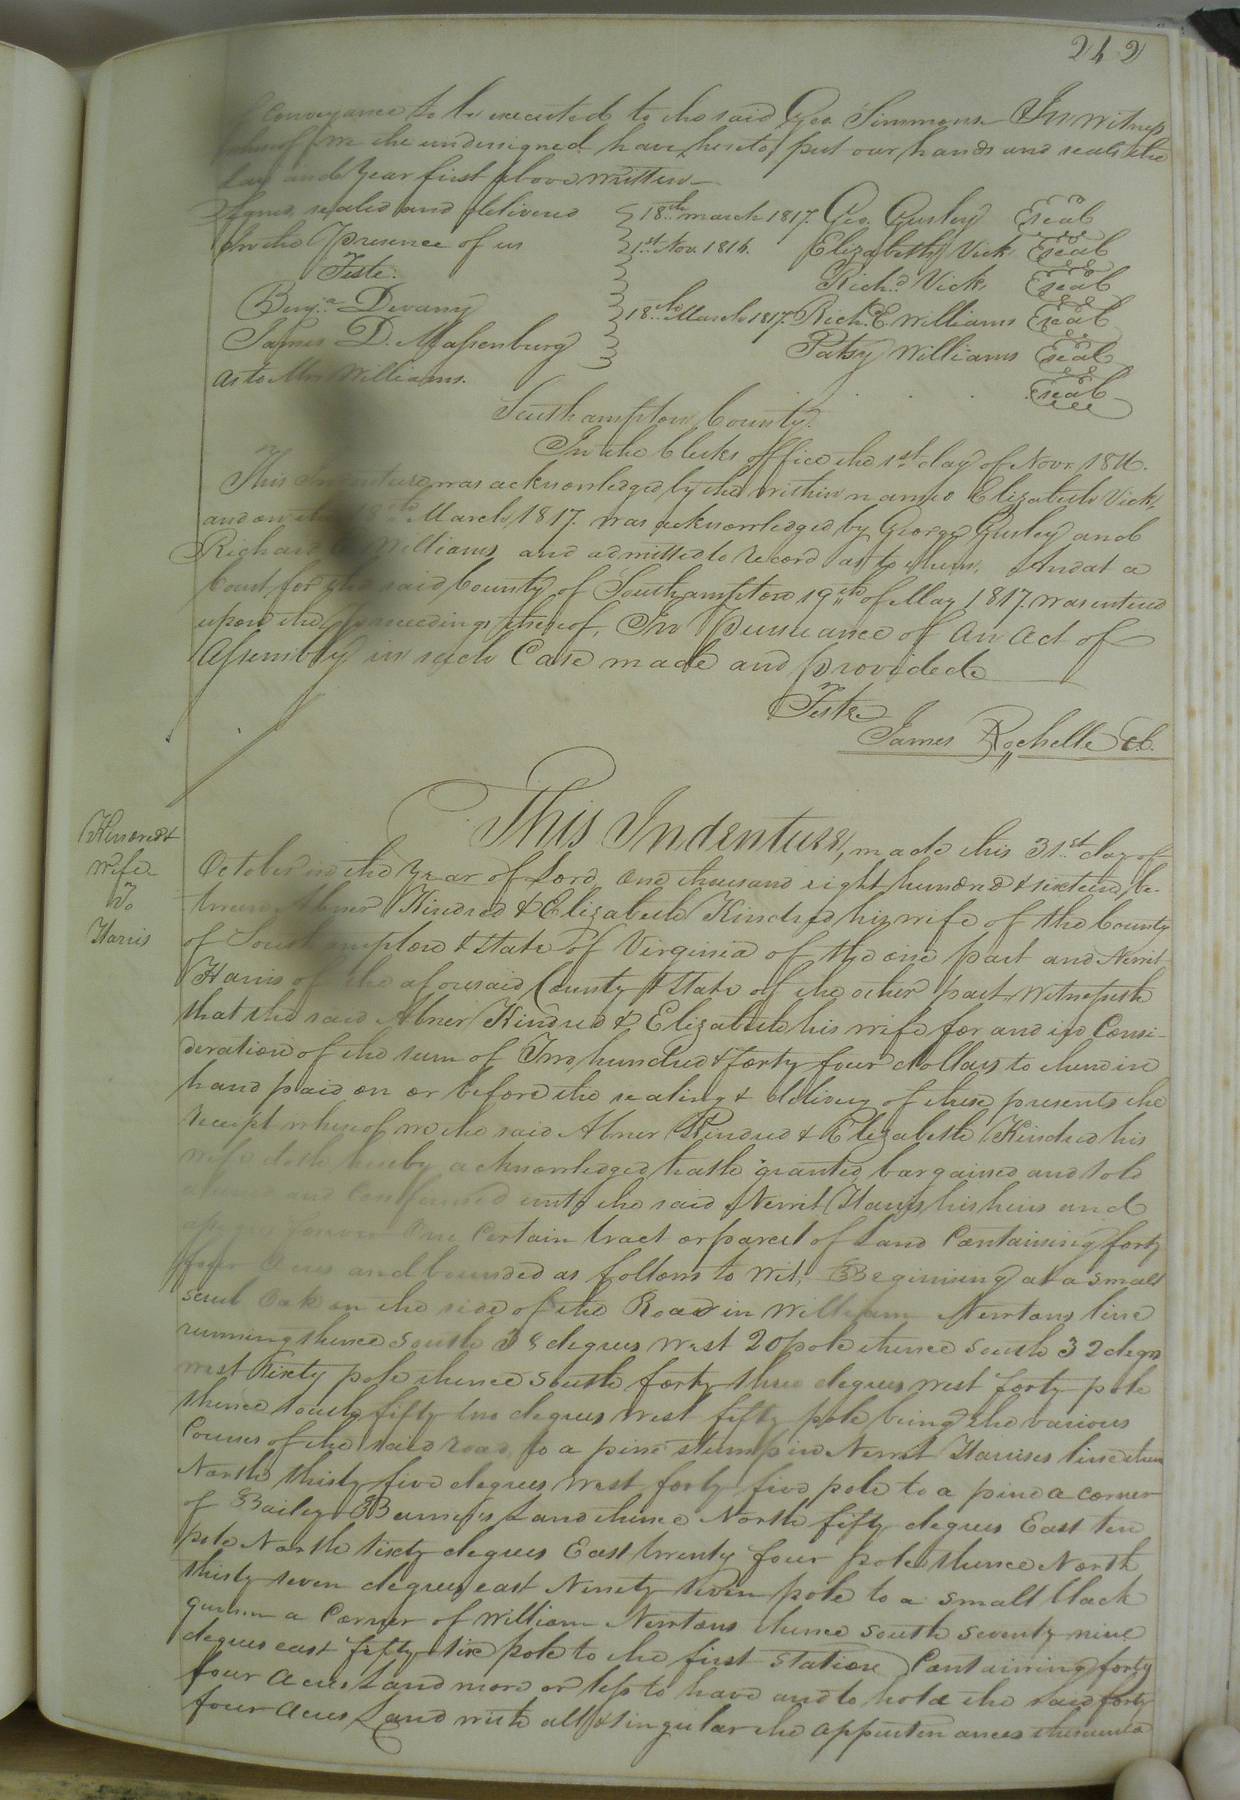 242
Conveyance to be executed to the said Geo. Simmons. In witness
whereof We the undersigned have hereto put our hands and seals the
day and Year first above written
Signed, sealed and delivered } 18th march 1817. Geo. Gurley Seal
In the Presence of us } 1st Nov. 1816. Elizabeth Vick Seal
Teste. } Richd. Vick Seal
Benja. Devany } 18th March 1817 Rich. E. Williams Seal
James D. Massenburg } Patsy Williams Seal
as to Mrs Williams. Seal
Southampton County.
In the Clerks office the 1st day of Novr. 1816.
This Indenture was acknowledged by the within named Elizabeth Vick,
and on the 18th March, 1817. was acknowledged by George Gurley and
Richard E. Williams, and admitted to record as to them. And at a
Court, for the said County of Southampton 19th of May 1817. was entered
upon the proceedings thereof, In Pursuance of An Act of
Assembly in such Case made and provided
Teste
James Rochelle Cl.
Kindred &
wife
To
Harris
This Indenture, made this 31st day of
October in the Year of Lord One thousand eight hundred & sixteen, be-
tween Abner Kindred & Elizabeth Kindred his wife of the County
of Southampton & State of Virginia of the one part and Newit
Harris of the aforesaid County & State of the other part Witnesseth
that the said Abner Kindred & Elizabeth his wife for and in Consi-
deration of the sum of Two hundred & forty four dollars to them in
hand paid on or before the sealing & delivery of these presents the
receipt whereof we the said Abner Kindred & Elizabeth Kindred his
wife doth hereby acknowledged, hath granted, bargained and sold
aliened and Confirmed unto the said Newit Harris, his heirs and
assigns forever One Certain tract or parcel of Land Containing forty
four Acres and bounded as follows to Wit, Begining at a small
scrub Oak on the side of the Road in William Newtons line
running thence South 38 degrees West 20 pole thence South 32 degrs
west Sixty pole thence South forty three degrees west forty pole
thence South fifty two degrees West fifty pole being the various
Courses of the said road, to a pine stump in Newit Harrises line then
North thirty five degrees West forty five pole to a pine a corner
of Bailey Barnes's Land thence North fifty degrees East ten
pole North sixty degrees East twenty four pole thence North
thirty seven degrees east Ninety seven pole to a small black
gum in a Corner of William Newtons thence South seventy nine
degrees east fifty six pole to the first Station Containing forty
four Acres Land more or less to have and to hold the said forty
four Acres Land with all & singular the appurtenances thereunto